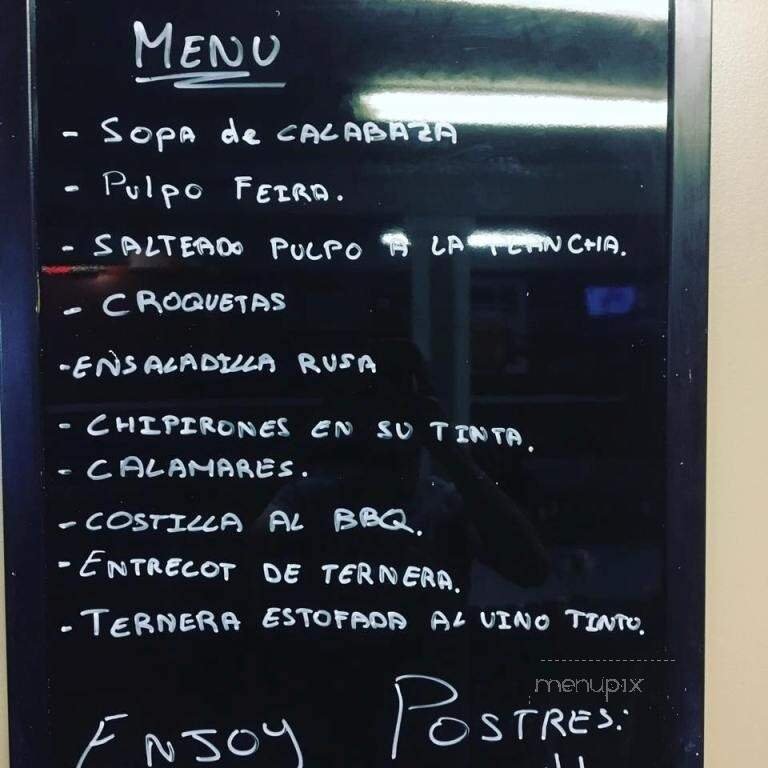 MENU
- SOPA de CALABAZA
- Pulpo FEIRA.
- SALTEADO PULPO A LA PLANCHA.
- CROQUETAS
- ENSALADILLA RUSA
- CHIPIRONES EN SU TINTA.
- CALAMARES.
- COSTILLA AL BBQ.
- ENTRECOT DE TERNERA.
- TERNERA ESTOFADA AL VINO TINTO.
menupix
POSTRES:
ENJOY